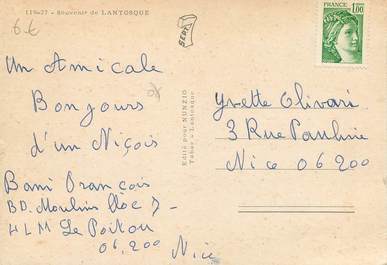 119-27 - Souvenir de LANTOSQUE
6 €
SEPT
FRANCE
1,00
un Amicale
Bonjours
d'un Niçois
Bani François
BD. Moulins Bloc 7
HLM Le Poitou
06,200 Nice
Edité pour NUNZIO
Tabac - Lantosque
Yvette Olivari
3 Rue Pauline
Nice 06200